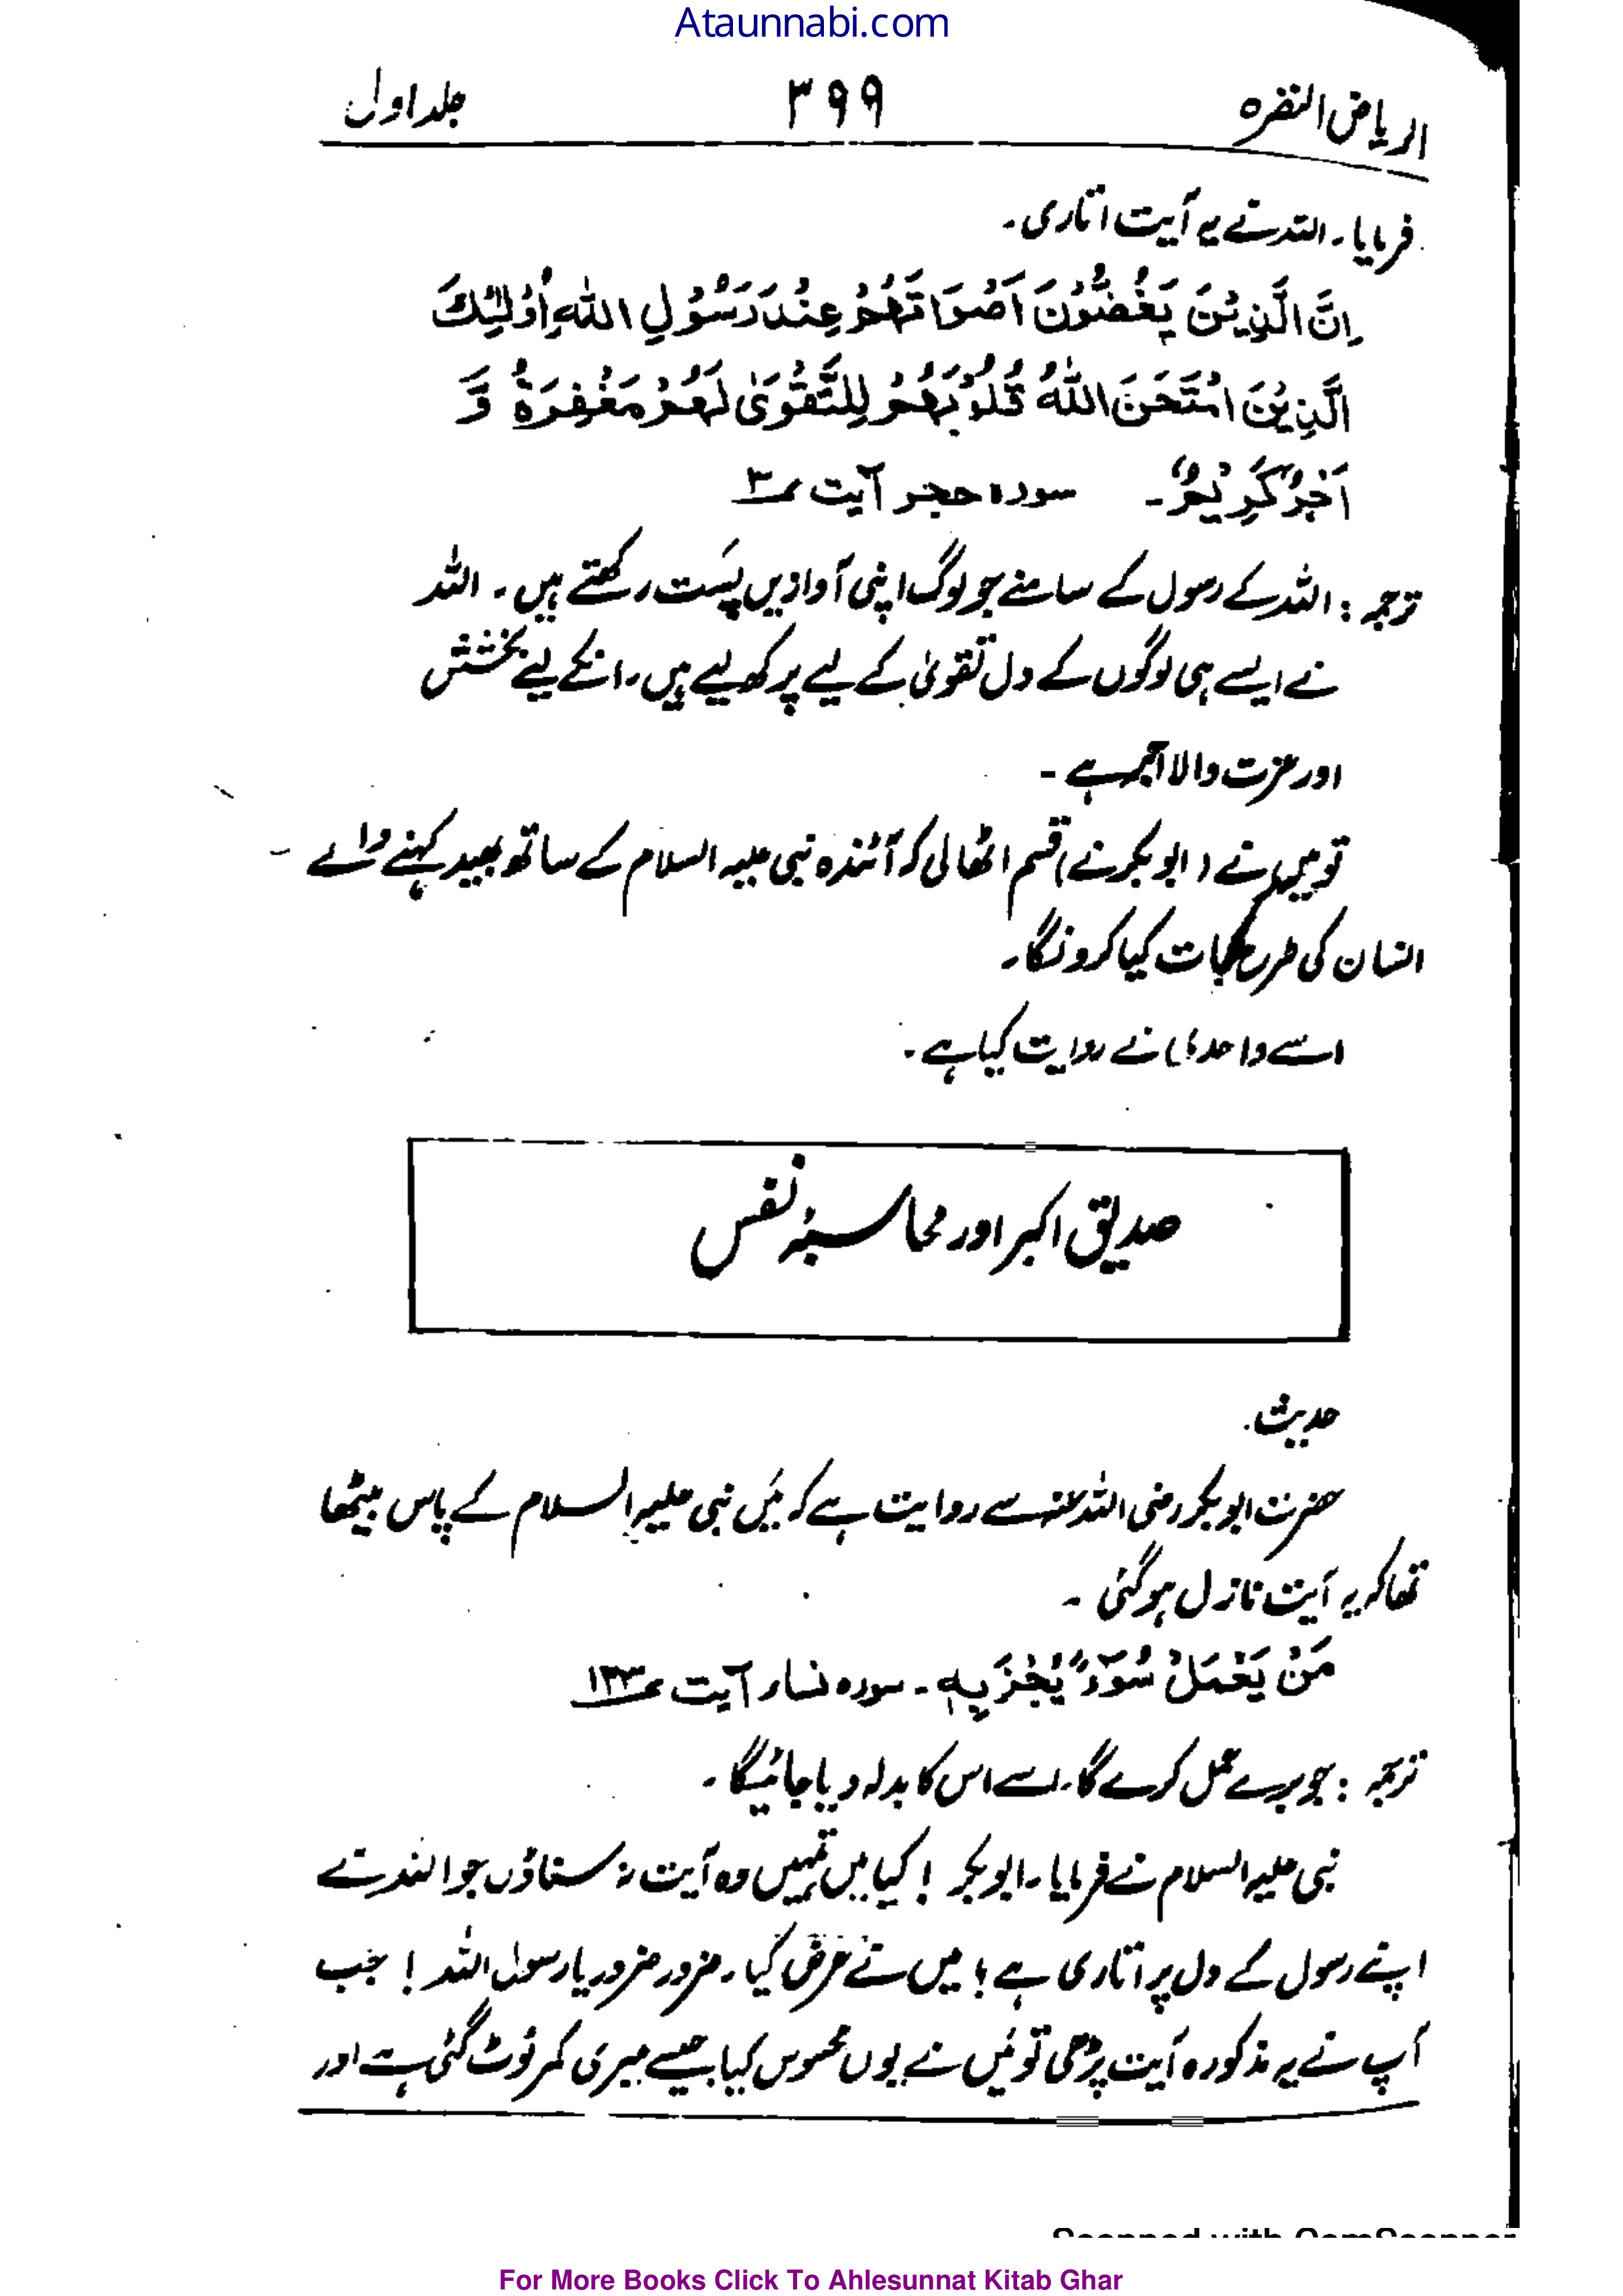 Ataunnabi.com
الریاض النضرہ ۳۹۹ جلد اول
فرمایا۔ اللہ نے یہ آیت اتاری۔
اِنَّ الَّذِیْنَ یَغُضُّوْنَ اَصْوَاتَهُمْ عِنْدَ رَسُوْلِ اللّٰهِ اُوْلٰٓئِكَ
الَّذِیْنَ امْتَحَنَ اللّٰهُ قُلُوْبَهُمْ لِلتَّقْوَىٰ لَهُمْ مَغْفِرَةٌ وَّ
اَجْرٌ كَرِیْمٌ۔ سورہ حجر آیت ۳
ترجمہ : اللہ کے رسول کے سامنے جو لوگ اپنی آوازیں پست رکھتے ہیں۔ اللہ
نے ایسے ہی لوگوں کے دل تقویٰ کے لیے پرکھ لیے ہیں۔ انکے لیے بخشش
اور عزت والا اجر ہے۔
تو میں نے (ابوبکر نے) قسم اٹھالی کہ آئندہ نبی علیہ السلام کے ساتھ بھید کہنے والے
انسان کی طرح بات کیا کرونگا۔
اسے واحدی نے روایت کیا ہے۔
صدیق اکبر اور محاسبۂ نفس
حدیث
حضرت ابوبکر رضی اللہ عنہ سے روایت ہے کہ میں نبی علیہ السلام کے پاس بیٹھا
تھا کہ یہ آیت نازل ہوگئی۔
مَنْ یَعْمَلْ سُوْٓءً یُجْزَ بِهٖ۔ سورہ نساء آیت ۱۲۳
ترجمہ : جو برے عمل کرے گا۔ اسے اس کا بدلہ دیا جائیگا۔
نبی علیہ السلام نے فرمایا۔ ابوبکر ! کیا میں تمہیں وہ آیت نہ سناؤں جو اللہ نے
اپنے رسول کے دل پر اتاری ہے ؟ میں نے عرض کیا۔ ضرور ضرور یا رسول اللہ ! جب
آپ نے یہ مذکورہ آیت پڑھی تو میں نے یوں محسوس کیا جیسے میری کمر ٹوٹ گئی ہے اور
Scanned with CamScanner
For More Books Click To Ahlesunnat Kitab Ghar